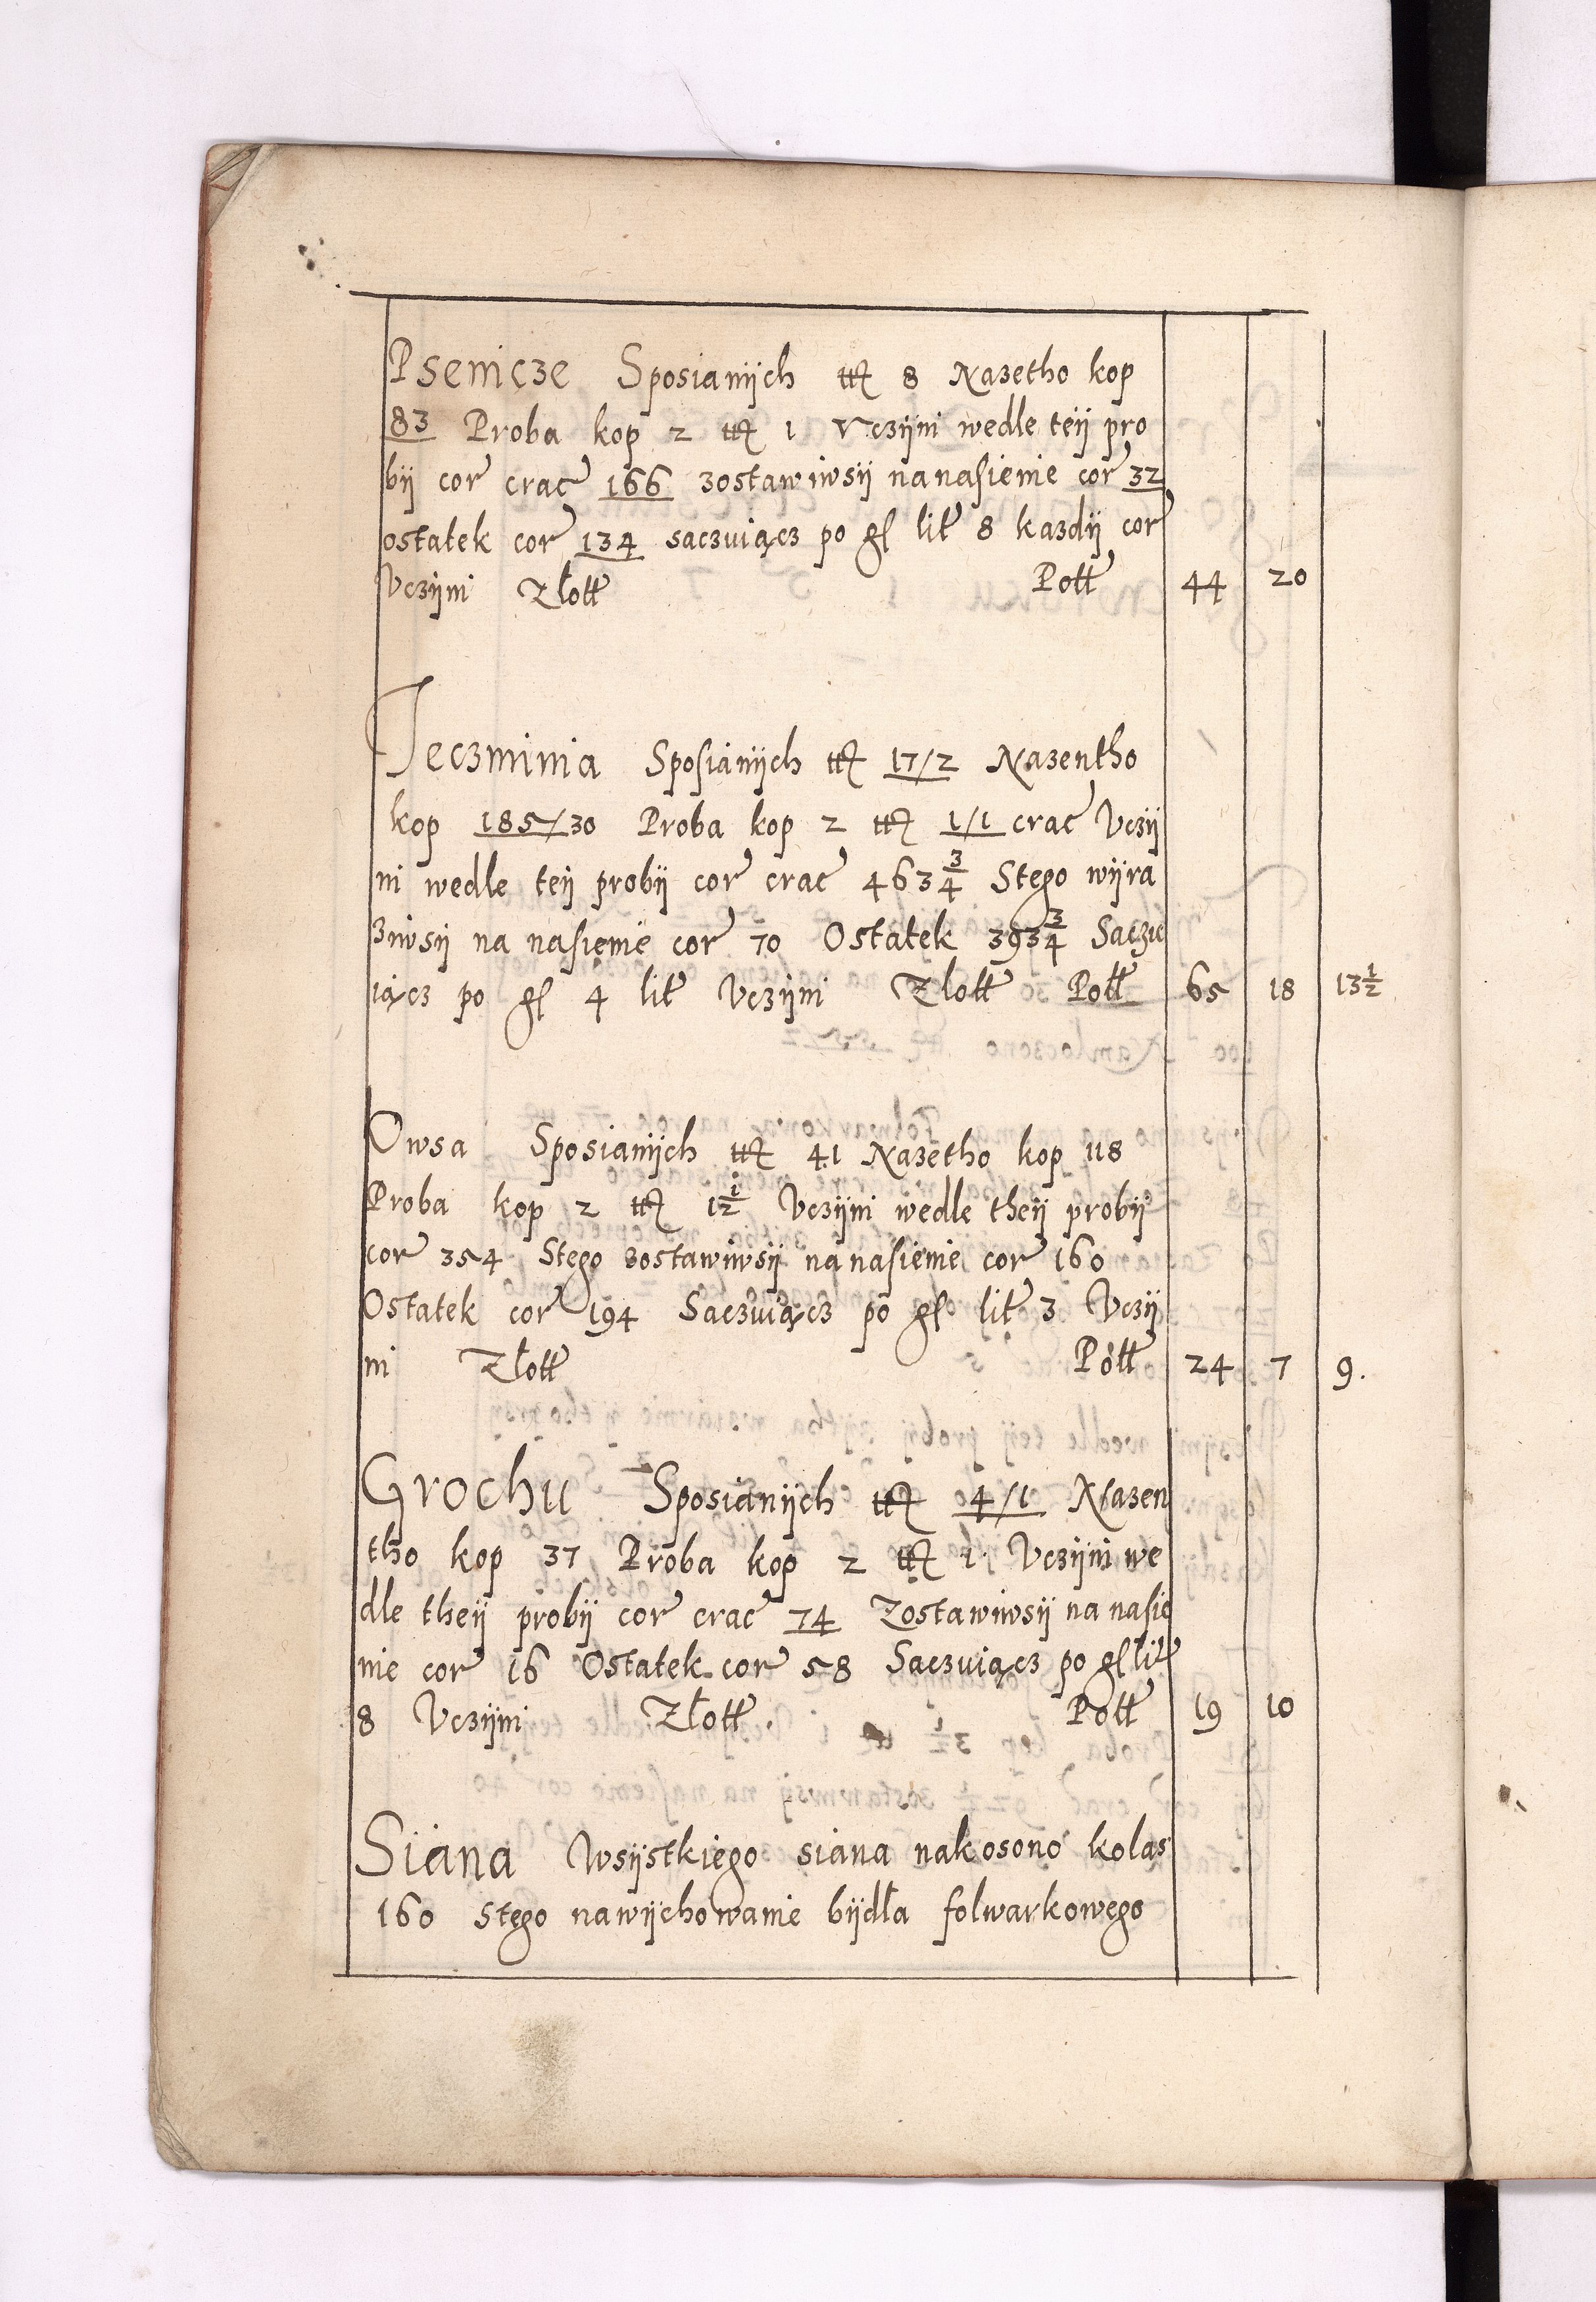 Psenicze Sposianÿch ttʒ 8 Nazetho kop
83 Proba kop 2 ttʒ 1 Vczÿni wedle teÿ pro
bÿ cor crac 166 zostawiwsÿ na nasienie cor 32
ostatek cor 134 saczuiącz po gſ lit 8 kazdÿ cor
Vczÿni Złott Pott 44 20
Jeczminia Sposianÿch ttʒ 17/2 Nazentho
kop 185/30 Proba kop 2 ttʒ 1/1 crac Vczÿ
ni wedle teÿ probÿ cor crac 463 3/4 Stego wÿra
ziwsÿ na nasienie cor 70 Ostatek 393 3/4 Saczu
iącz po gſ 4 lit Vczÿni Złott Pott 65 18 13 1/2
Owsa Sposianÿch ttʒ 41 Nazetho kop 118
Proba kop 2 ttʒ 1 1/2 Vczÿni wedle theÿ probÿ
cor 354 Stego zostawiwsÿ na nasienie cor 160
Ostatek cor 194 Saczuiącz po gſ lit 3 Vczÿ
ni Złott Pott 24 7 9.
Grochu Sposianÿch ttʒ 4/1 Nazen
tho kop 37 Proba kop 2 ttʒ 1 Vczÿni we
dle theÿ probÿ cor crac 74 Zostawiwsÿ na nasie
nie cor 16 Ostatek cor 58 Saczuiącz po gſ lit
8 Vczÿni Złott Pott 19 10
Siana Wsÿstkiego siana nakosono kolas
160 stego na wÿchowanie bÿdła folwarkowego